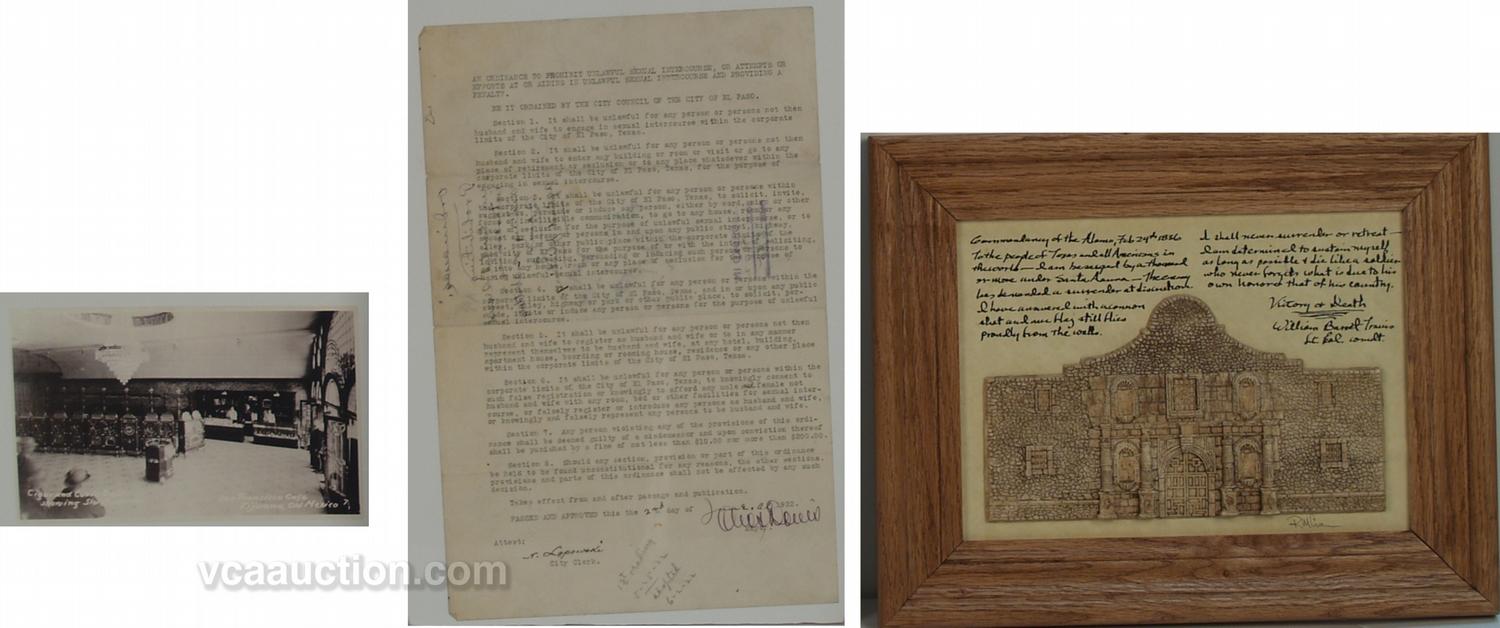 Cigar and Curi
showing Sta
San Francisco Cafe
Tijuana, Old Mexico 7.
vcaauction.com
AN ORDINANCE TO PROHIBIT UNLAWFUL SEXUAL INTERCOURSE, OR ATTEMPTS OR
EFFORTS AT OR AIDING IN UNLAWFUL SEXUAL INTERCOURSE AND PROVIDING A
PENALTY.
BE IT ORDAINED BY THE CITY COUNCIL OF THE CITY OF EL PASO.
Section 1. It shall be unlawful for any person or persons not then
husband and wife to engage in sexual intercourse within the corporate
limits of the City of El Paso, Texas.
Section 2. It shall be unlawful for any person or persons not then
husband and wife to enter any building or room or visit or go to any
place of retirement or seclusion or to any place whatsoever within the
corporate limits of the City of El Paso, Texas, for the purpose of
engaging in sexual intercourse.
Section 3. It shall be unlawful for any person or persons within
the corporate limits of the City of El Paso, Texas, to solicit, invite,
persuade or induce any person, either by word, or other
communication, to go to any house, or any
place of seclusion for the purpose of unlawful sexual intercourse, or to
person or persons in and upon any public street, highway,
alley, park or other public place within the corporate limits of the
City of El Paso, Texas for the purpose of or with the intent of soliciting,
inviting, persuading or inducing such person or persons to
go into any house, room or any place of seclusion for the purpose of
having unlawful sexual intercourse.
Section 4. It shall be unlawful for any person or persons within the
corporate limits of the City of El Paso, Texas, and in or upon any public
street, alley, highway or park or other public place, to solicit, per-
suade, invite or induce any person or persons for the purpose of unlawful
sexual intercourse.
Section 5. It shall be unlawful for any person or persons not then
husband and wife to register as husband and wife or to in any manner
represent themselves to be husband and wife, at any hotel, building,
apartment house, boarding or rooming house, residence or any other place
within the corporate limits of the City of El Paso, Texas.
Section 6. It shall be unlawful for any person or persons within the
corporate limits of the City of El Paso, Texas, to knowingly consent to
such false registration or knowingly to afford any male or female not
husband and wife with any room, bed or other facilities for sexual inter-
course, or falsely register or introduce any persons as husband and wife,
or knowingly and falsely represent any persons to be husband and wife.
Section 7. Any person violating any of the provisions of this ordi-
nance shall be deemed guilty of a misdemeanor and upon conviction thereof
shall be punished by a fine of not less than $10.00 nor more than $200.00.
Section 8. Should any section, provision or part of this ordinance
be held to be found unconstitutional for any reasons, the other sections,
provisions and parts of this ordinance shall not be affected by any such
decision.
Takes effect from and after passage and publication.
PASSED AND APPROVED this the 2nd day of June A.D. 1922.
Mayor.
Attest:
City Clerk.
1st reading
5-25-22
adopted
6-2-22
Commandancy of the Alamo, Feb 24th 1836
To the people of Texas and all Americans in
the world — I am besieged by a thousand
or more under Santa Anna — The enemy
has demanded a surrender at discretion
I have answered with a cannon
shot and our flag still flies
proudly from the walls.
I shall never surrender or retreat —
I am determined to sustain myself
as long as possible & die like a soldier
who never forgets what is due to his
own honor & that of his country.
Victory or Death
William Barret Travis
Lt. Col. comdt.